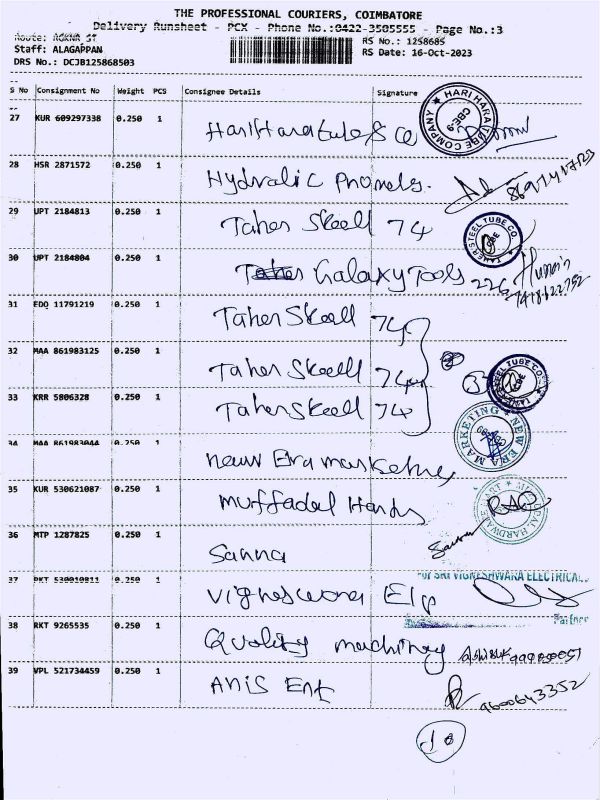 THE PROFESSIONAL COURIERS, COIMBATORE
Delivery Runsheet - PCX - Phone No.:0422-3505555 - Page No.:3
Route:
RS No.: 1258685
Staff: ALAGAPPAN
RS Date: 16-Oct-2023
DRS No.: DCJB125868503
S No Consignment No Weight PCS Consignee Details Signature
27 KUR 609297338 0.250 1 HariHaratube & Co
HARI HARA TUBE COMPANY CBE-9
28 HSR 2871572 0.250 1 Hydralic
29 UPT 2184813 0.250 1 Taher Skell 74
TAHER STEEL TUBE CO. CBE
30 UPT 2184804 0.250 1 Galaxy Tools 226
31 EDO 11791219 0.250 1 Taher Skell 74
32 MAA 861983125 0.250 1 Taher Skell 74
33 KRR 5806328 0.250 1 Taher Skell 74
TAHER STEEL TUBE CO. CBE
34 MAA 861983044 0.250 1
NEW ERA MARKETING
35 KUR 530621087 0.250 1 muffadal Hards
HARDWARE MART
36 MTP 1287825 0.250 1 Sanna
37 PKT 530010811 0.250 1 vigneswara Elp
For SRI VIGNESHWARA ELECTRICAL
Partner
38 RKT 9265535 0.250 1 Quality machinery
39 VPL 521734459 0.250 1 Anis Ent
9600643352